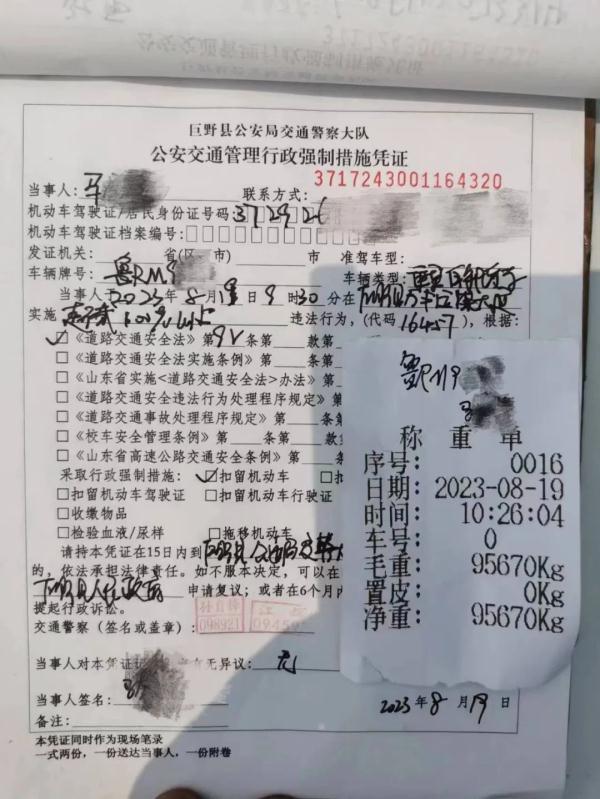 3717243001164320
巨野县公安局交通警察大队
公安交通管理行政强制措施凭证
3717243001164320
当事人: 马 联系方式:
机动车驾驶证/居民身份证号码 372926
机动车驾驶证档案编号:
发证机关: 省(区 市) 市 准驾车型:
车辆牌号: 鲁RM9 车辆类型:
当事人于 2023 年 8 月 19 日 9 时 30 分在
实施 违法行为,(代码 16457),根据:
《道路交通安全法》第 92 条第 款第
《道路交通安全法实施条例》第 条第
《山东省实施<道路交通安全法>办法》第
《道路交通安全违法行为处理程序规定》第
《道路交通事故处理程序规定》第 条第
《校车安全管理条例》第 条第 款第
《山东省高速公路交通安全条例》第
采取行政强制措施: 扣留机动车
扣留机动车驾驶证 扣留机动车行驶证
收缴物品
检验血液/尿样 拖移机动车
请持本凭证在15日内到 巨野县公安局交警大
的,依法承担法律责任。如不服本决定,可以在
巨野县人民政府 申请复议;或者在6个月内
提起行政诉讼。
交通警察(签名或盖章): 098921 09450
当事人对本凭证记 有无异议: 无
当事人签名:
2023 年 8 月 19 日
备注:
本凭证同时作为现场笔录
一式两份,一份送达当事人,一份附卷
鲁RM9
称重单
序号: 0016
日期: 2023-08-19
时间: 10:26:04
车号: 0
毛重: 95670Kg
置皮: 0Kg
净重: 95670Kg